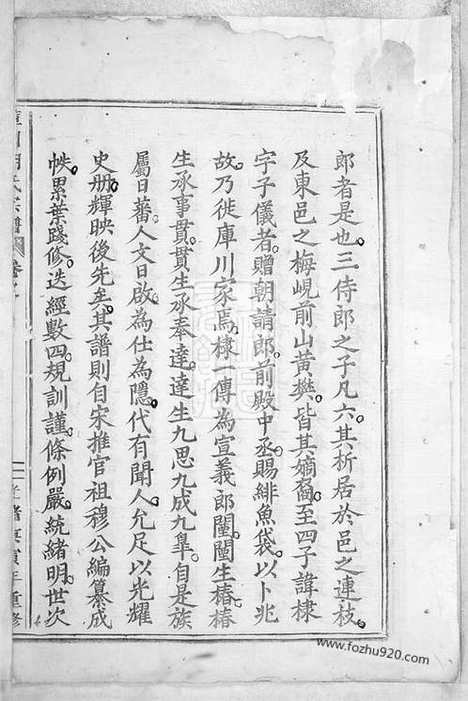 郎者是也。三侍郎之子凡六。其析居於邑之連枝
及東邑之梅峴前山黃樊。皆其嫡裔。至四子諱棣
字子儀者。贈朝請郎。前殿中丞。賜緋魚袋。以卜兆
故。乃徙庫川家焉。棣一傳為宣義郎闓。闓生椿。椿
生承事貫。貫生承奉達。達生九思九成九臯。自是族
屬日蕃。人文日啟。為仕為隱。代有聞人。允足以光耀
史册。輝映後先矣。其譜則自宋推官祖穆公編纂成
帙。累葉踐修。迭經數四。規訓謹。條例嚴。統緒明。世次
氏宗譜
庚寅年重修
www.fozhu920.com